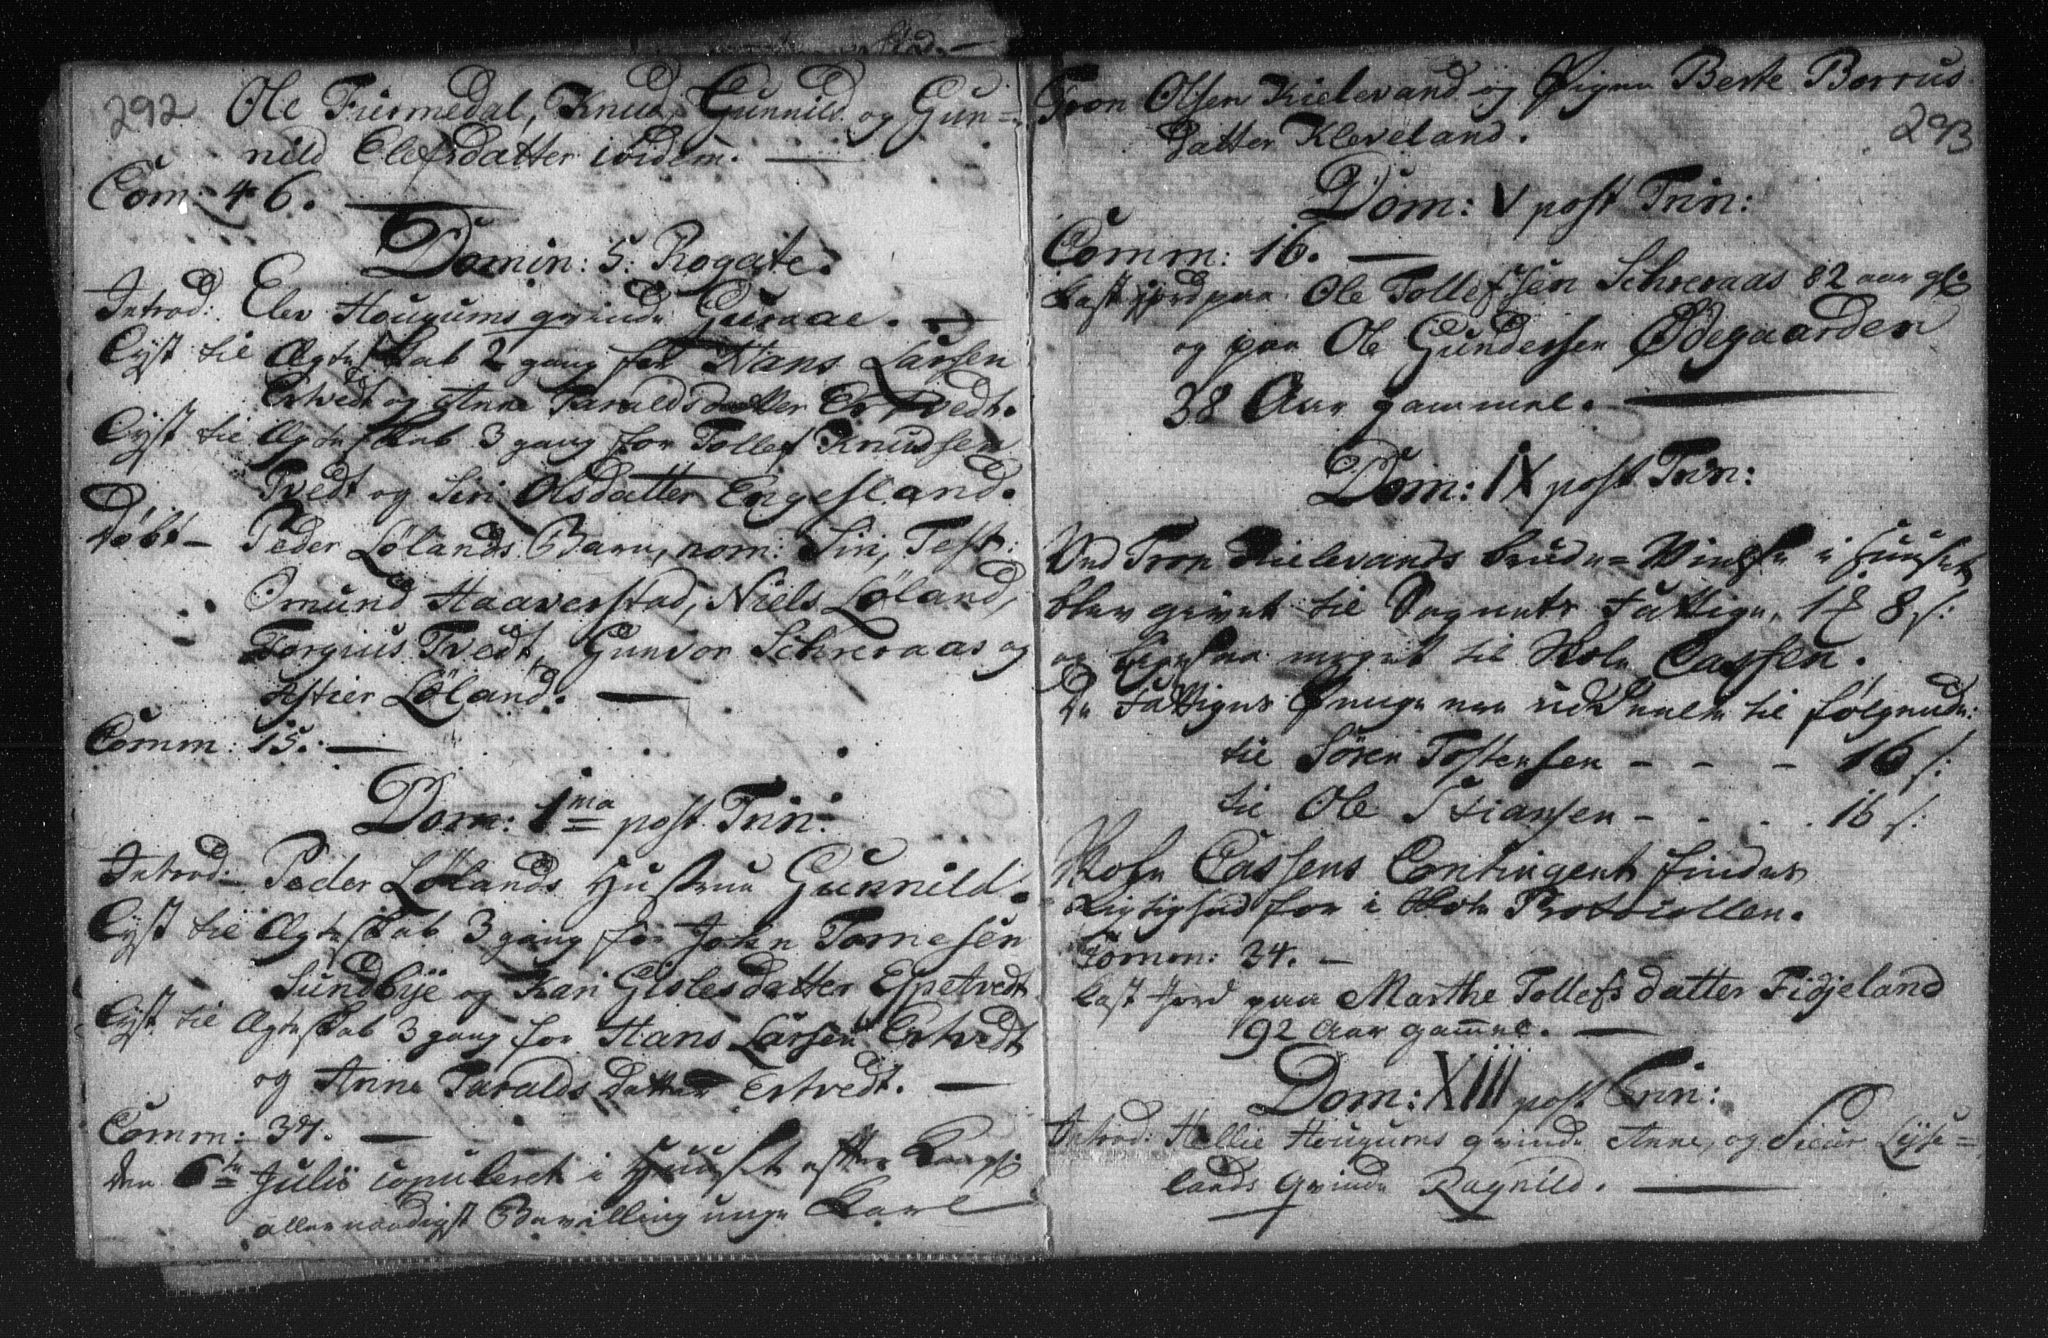 292
Ole Fiermedal, Knud, Gunnild og Gun=
nild Elefsdatter ibidem.
Com: 46.
Domin: 5: Rogate.
Introd: Elev Hougums qvinde Guraae.
Lyst til Ægteskab 2 gang for Hans Larsen
Ertvedt og Anne Taraldsdatter Ertvedt.
Lyst til Ægteskab 3 gang for Tollef Knudsen
Tvedt og Siri Olsdatter Engesland.
Døbt – Peder Lølands Barn, nom: Siri, Test:
Omund Haaverstad, Niels Løland,
Torgius Tvedt, Gunvor Schreraas og
Løland.
Comm: 15.
Dom: 1ma post Trin:
Introd: Peder Lølands Hustrue Gunnild.
Lyst til Ægteskab 3 gang for John Tomesen
Sundbye og Kari Gislesdatter Espetvedt
Lyst til Ægteskab 3 gang for Hans Larsen Ertvedt
og Anne Taralds Datter Ertvedt.
Comm: 37.
den 6te Julii copuleret i Huuset efter Kongl:
allernaadigst Bevilling unge Karl
Tron Olsen Kielevand og Pigen Berte Borrus
293
datter Kleveland.
Dom: V post Trin:
Comm: 16.
kast jord paa Ole Tollefsen Schreraas 82 aar gl:
og paa Ole Gundersen Ødegaarden
38 Aar gammel.
Dom: IX post Trin:
Ved Tron Kielevands brude=Vielse i Huuset
blev givet til Sognets Fattige, 1 8 s:
og ligesaa meget til Skole Cassen.
De Fattiges Penge er uddeelte til følgende:
til Sören Tostensen - - - 16 s:
til Ole Stiansen - - - 16 s:
Skole Cassens Contingent findes
rigtighed for i Skole Protocollen.
Comm: 34.
kast Jord paa Marthe Tollefsdatter Fidjeland
92 Aar gammel.
Dom: XIII post Trin:
Introd: Hellie Hougums qvinde Anne, og Siur Lyse=
lands Qvinde Ragnild.